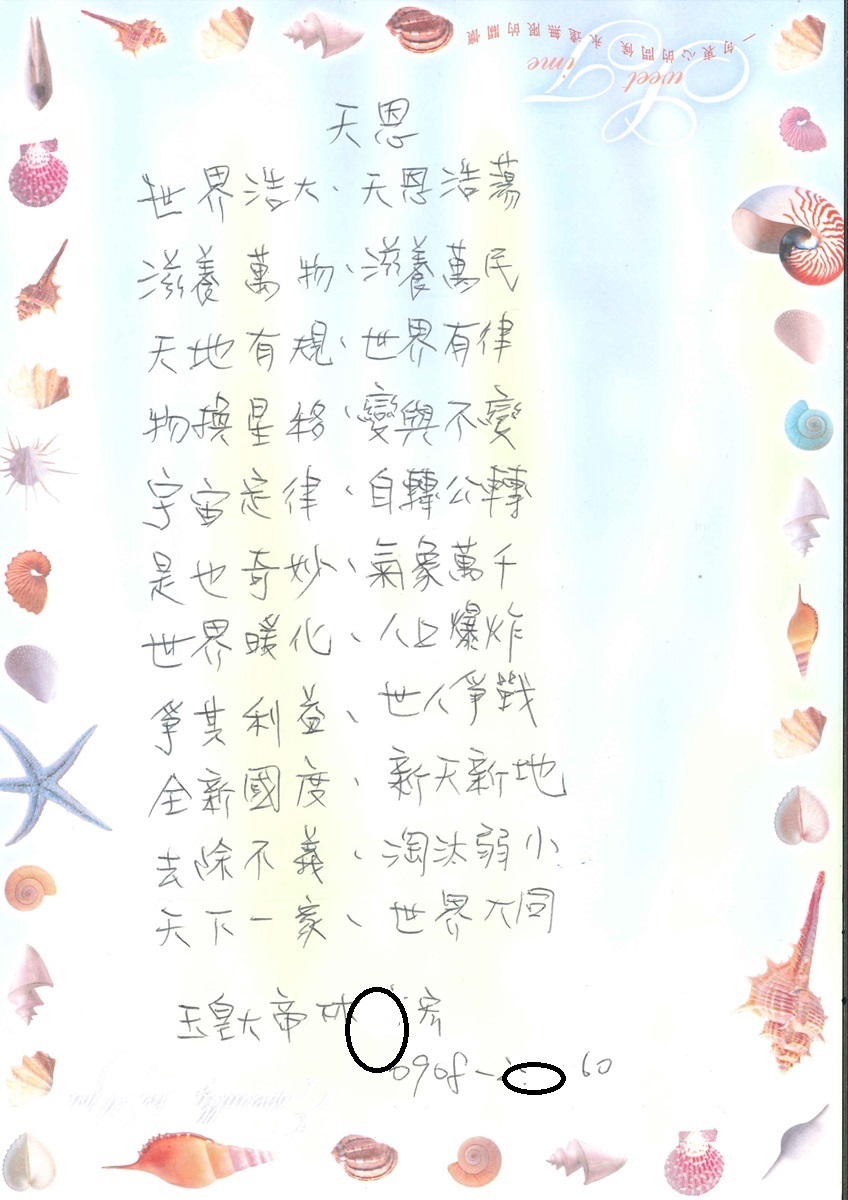 一句衷心的問候 永遠無限的關懷
Sweet Time
天恩
世界浩大、天恩浩蕩
滋養萬物、滋養萬民
天地有規、世界有律
物換星移、變與不變
宇宙定律、自轉公轉
是也奇妙、氣象萬千
世界暖化、人口爆炸
爭其利益、世人爭戰
全新國度、新天新地
去除不義、淘汰弱小
天下一家、世界大同
玉皇大帝林 宏
0908- 60